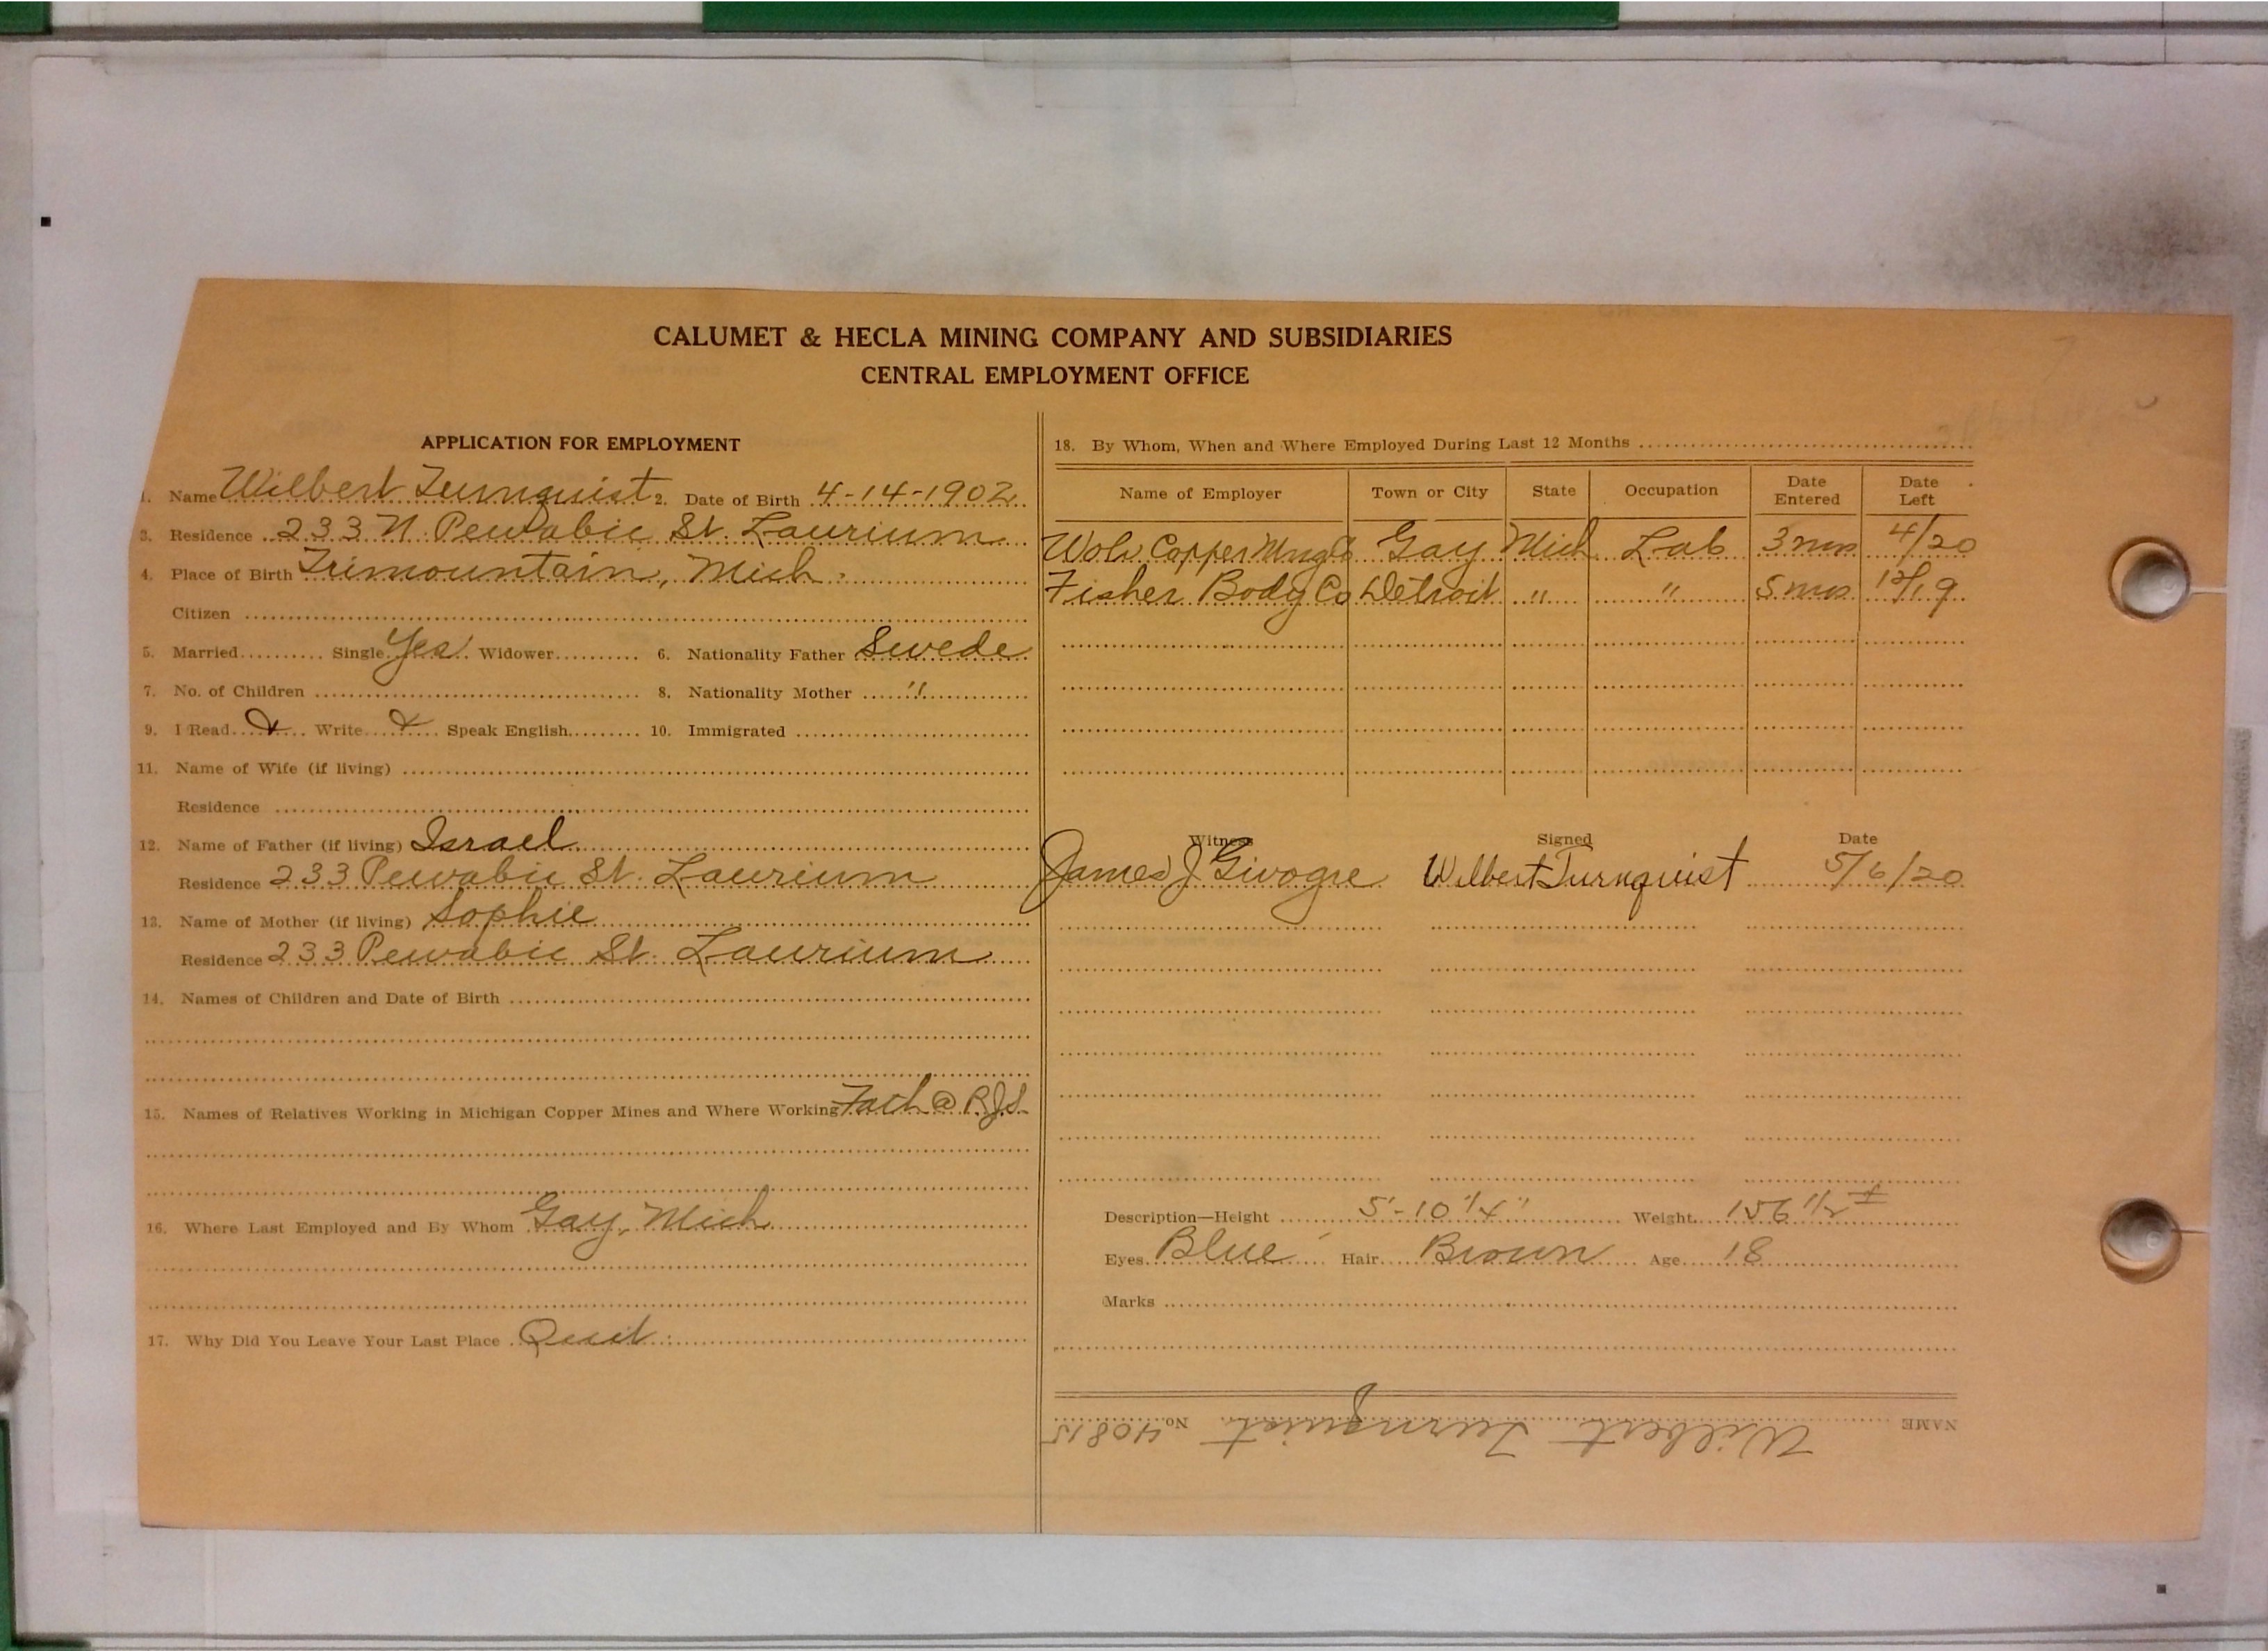 CALUMET & HECLA MINING COMPANY AND SUBSIDIARIES
CENTRAL EMPLOYMENT OFFICE
APPLICATION FOR EMPLOYMENT
1. Name Wilbert Turnquist 2. Date of Birth 4-14-1902
3. Residence 233 N. Pewabic St. Laurium
4. Place of Birth Trimountain, Mich.
Citizen
5. Married Single Yes Widower 6. Nationality Father Swede
7. No. of Children 8. Nationality Mother "
9. I Read X Write X Speak English 10. Immigrated
11. Name of Wife (if living)
Residence
12. Name of Father (if living) Israel
Residence 233 Pewabic St. Laurium
13. Name of Mother (if living) Sophie
Residence 233 Pewabic St. Laurium
14. Names of Children and Date of Birth
15. Names of Relatives Working in Michigan Copper Mines and Where Working Fath @
16. Where Last Employed and By Whom Gay, Mich
17. Why Did You Leave Your Last Place Quit
18. By Whom, When and Where Employed During Last 12 Months
Name of Employer Town or City State Occupation Date Entered Date Left
Wolv. Copper Mng Co Gay Mich Lab 3 mos 4/20
Fisher Body Co Detroit " " 5 mos 12/19
Witness Signed Date
James J Wilbert Turnquist 5/6/20
Description—Height 5'-10 1/4" Weight 156 1/2
Eyes Blue Hair Brown Age 18
Marks
NAME Wilbert Turnquist No. 40815